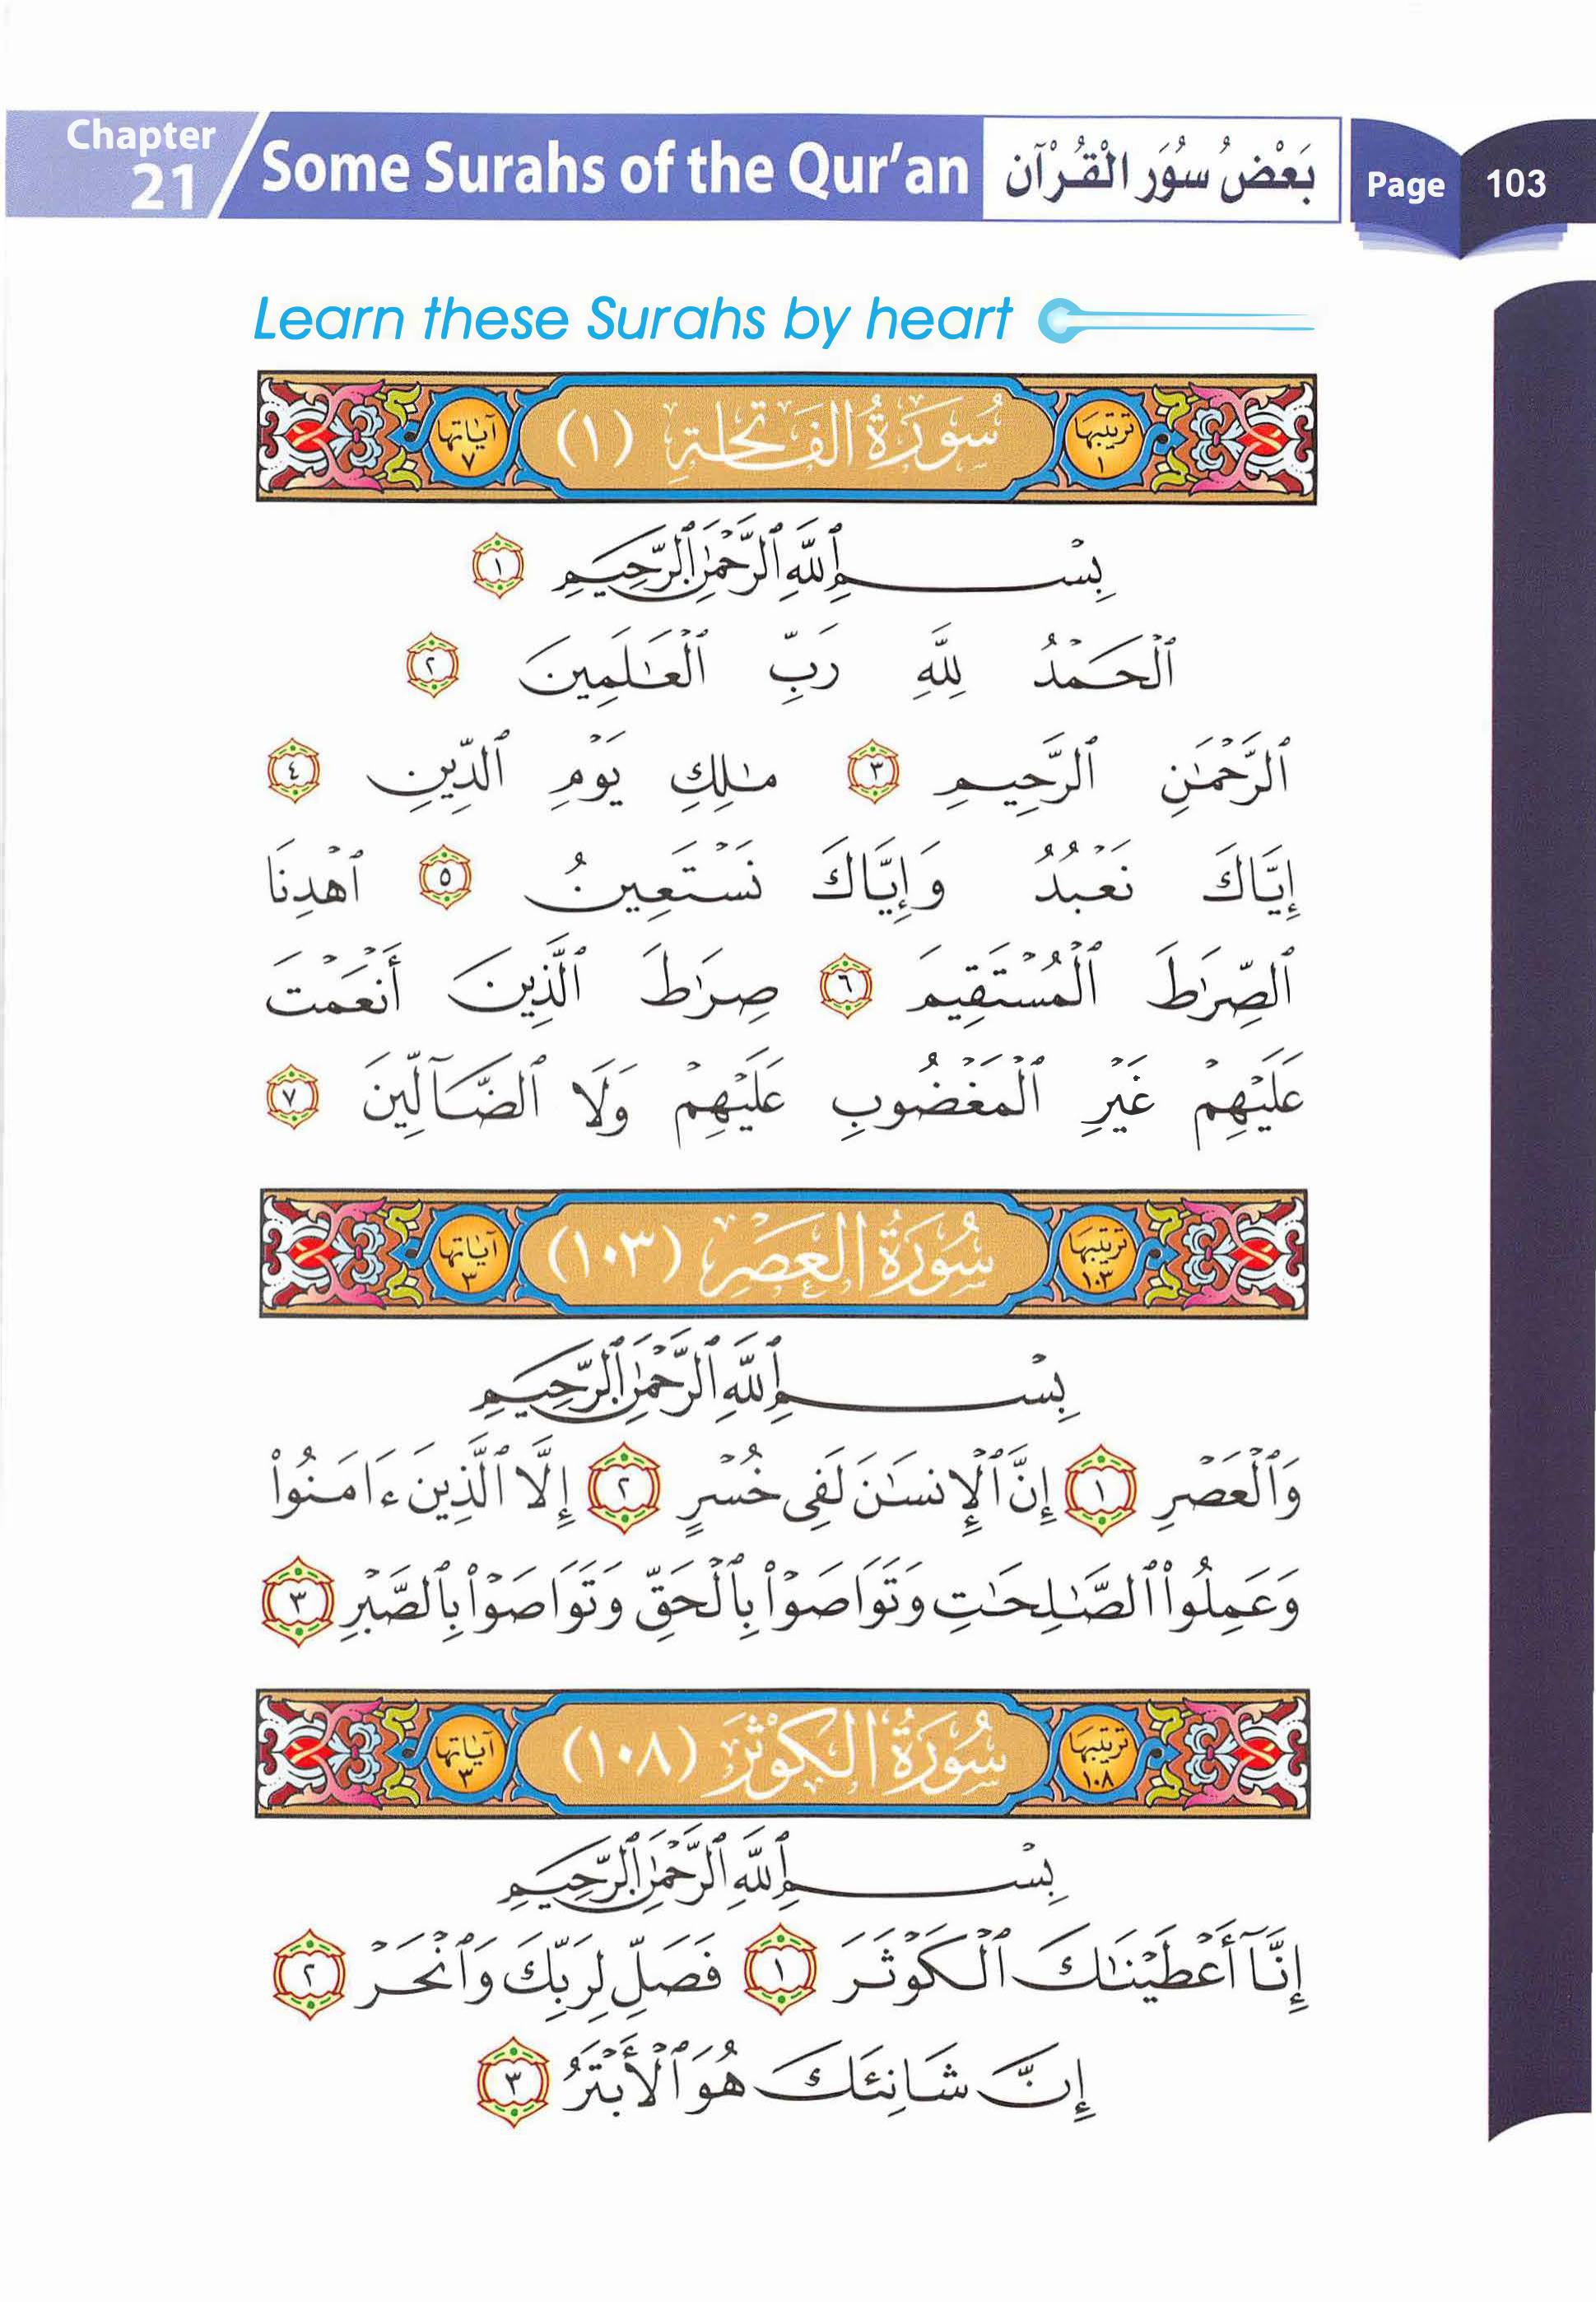 Chapter 21 Some Surahs of the Qur'an بَعْضُ سُوَر الْقُرْآن Page 103
Learn these Surahs by heart
ترتيبها ١ سُورَةُ الفَاتِحَةِ (١) آياتها ٧
بِسْمِ ٱللَّهِ ٱلرَّحْمَٰنِ ٱلرَّحِيمِ ١
ٱلْحَمْدُ لِلَّهِ رَبِّ ٱلْعَٰلَمِينَ ٢
ٱلرَّحْمَٰنِ ٱلرَّحِيمِ ٣ مَٰلِكِ يَوْمِ ٱلدِّينِ ٤
إِيَّاكَ نَعْبُدُ وَإِيَّاكَ نَسْتَعِينُ ٥ ٱهْدِنَا
ٱلصِّرَٰطَ ٱلْمُسْتَقِيمَ ٦ صِرَٰطَ ٱلَّذِينَ أَنْعَمْتَ
عَلَيْهِمْ غَيْرِ ٱلْمَغْضُوبِ عَلَيْهِمْ وَلَا ٱلضَّآلِّينَ ٧
ترتيبها ١٠٣ سُورَةُ العَصْرِ (١٠٣) آياتها ٣
بِسْمِ ٱللَّهِ ٱلرَّحْمَٰنِ ٱلرَّحِيمِ
وَٱلْعَصْرِ ١ إِنَّ ٱلْإِنسَٰنَ لَفِى خُسْرٍ ٢ إِلَّا ٱلَّذِينَ ءَامَنُوا۟
وَعَمِلُوا۟ ٱلصَّٰلِحَٰتِ وَتَوَاصَوْا۟ بِٱلْحَقِّ وَتَوَاصَوْا۟ بِٱلصَّبْرِ ٣
ترتيبها ١٠٨ سُورَةُ الكَوْثَرِ (١٠٨) آياتها ٣
بِسْمِ ٱللَّهِ ٱلرَّحْمَٰنِ ٱلرَّحِيمِ
إِنَّآ أَعْطَيْنَٰكَ ٱلْكَوْثَرَ ١ فَصَلِّ لِرَبِّكَ وَٱنْحَرْ ٢
إِنَّ شَانِئَكَ هُوَ ٱلْأَبْتَرُ ٣